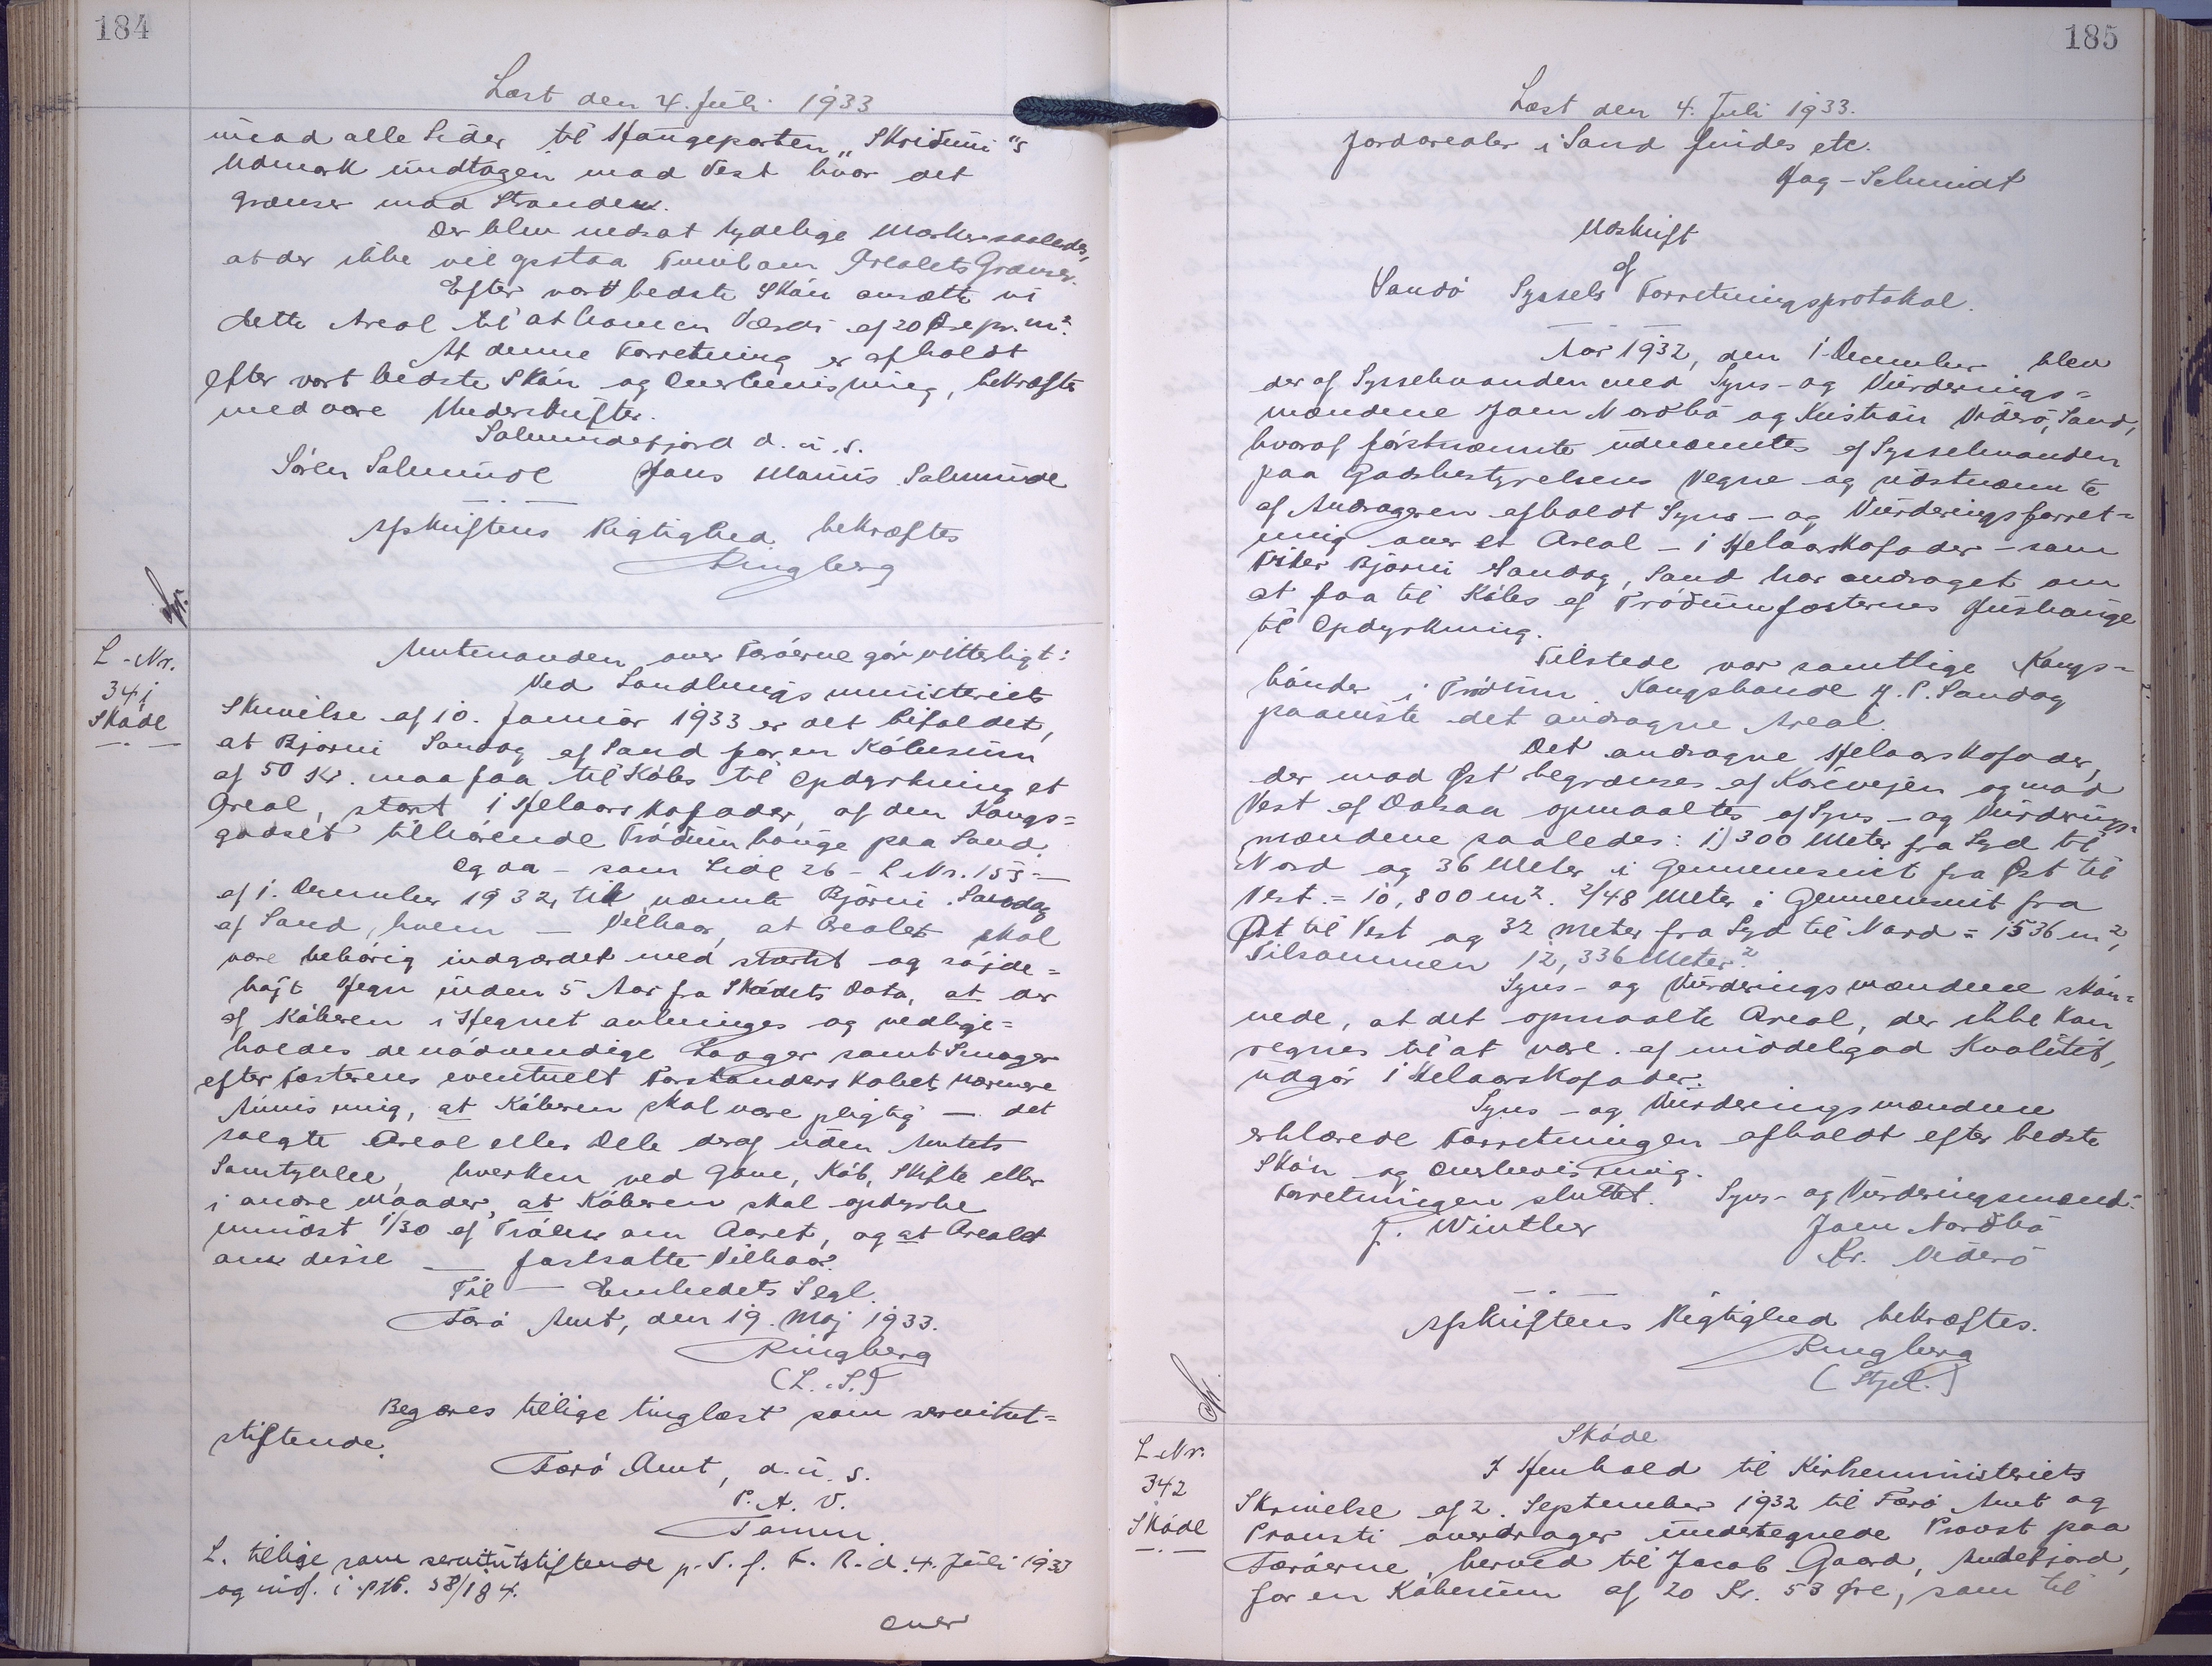 184
Læst den 4. Juli 1933
mod alle Sider til Haugeparten „Skriduni"s
Udmark undtagen mod Vest hvor det
grænser mod Stranden.
Der blev nedsat tydelige Mærker saaledes,
at der ikke vil opstaa Tvivl om Arealets Grænser.
Efter vort bedste Skön ansætte vi
dette Areal til at have en Værdi af 20 Øre pr. m².
At denne Forretning er afholdt
efter vort bedste Skön og Overbevisning, bekræftes
med vore Underskrifter.
Salmundefjord d. u. s.
Sören Salmunde Jens Marius Salmunde
Afskriftens Rigtighed bekræftes
Ringberg
L-Nr.
341
Sköde
Amtmanden over Færöerne gör vitterligt:
Ved Landbrugsministeriets
Skrivelse af 10. Januar 1933 er det bifaldet,
at Bjarni Sandoy af Sand for en Köbesum
af 50 Kr. maa faa til Köbs til Opdyrkning et
Areal, stort 1 Helaarskofoder, af den Kongs=
godset tilhörende Tródum hauge paa Sand.
Og da – som Side 26 – L Nr. 155 –
af 1. December 1932, til nævnte Bjarni Sandoy
af Sand, hvem — Vilkaar, at Arealet skal
være behörig indgærdet med stærkt og söjde=
höjt Hegn inden 5 Aar fra Sködets Dato, at der
af Köberen i Hegnet anbringes og vedlige=
holdes de nödvendige Laager samt Smoger
efter Fæsterens eventuelt Forstanderskabets nærmere
Anvisning, at Köberen skal være pligtig — det
solgte Areal eller Dele deraf uden Amtets
Samtykke, hverken ved Gave, Köb, Skifte eller
i andre Maader, at Köberen skal opdyrke
mindst 1/30 af Tröden om Aaret, og at Arealet
disse — fastsatte Vilkaar.
Til — Embedets Segl.
Færö Amt, den 19. Maj 1933.
Ringberg
(L. S.)
Begæres tillige tinglæst som servitut=
stiftende.
Færö Amt, d. u. s.
P. A. V.
L. tillige som servitutstiftende p. T. f. F. R. d. 4. Juli 1933
og indf. i ptk. 58/184.
over
185
Læst den 4. Juli 1933.
Jordarealer i Sand findes etc.
Høg-Schmidt
Udskrift
af
Sandö Syssels Forretningsprotokol.
Aar 1932, den 1 December blev
der af Sysselmanden med Syns- og Vurderings=
mændene Joen Nordbö og Kristian Viderö, Sand,
hvoraf förstnævnte udnævntes af Sysselmanden
paa Godsbestyrelsens Vegne og sidstnævnte
af Andrageren afholdt Syns- og Vurderingsforret=
ning over et Areal – 1 Helaarskofoder – som
Fisker Bjarni Sandoy, Sand har andraget om
at faa til Köbs af Tródumfæsternes Hushauge
til Opdyrkning.
Tilstede var samtlige Kongs=
bönder i Tródum Kongsbonde J. P. Sandoy
paaviste det andragne Areal.
Det andragne Helaarskofoder,
der mod Øst begrænses af Körevejen og mod
Vest af Dalsaa opmaaltes af Syns- og Vurderings=
mændene saaledes: 1) 300 Meter fra Syd til
Nord og 36 Meter i Gennemsnit fra Øst til
Vest. = 10,800 m². 2/ 48 Meter i Gennemsnit fra
Øst til Vest og 32 Meter fra Syd til Nord = 1536 m²,
Tilsammen 12,336 Meter².
Syns- og Vurderingsmændene skön=
nede, at det opmaalte Areal, der ikke kan
regnes til at være af middelgod Kvalitet,
udgör 1 Helaarskofoder.
Syns- og Vurderingsmændene
erklærede Forretningen afholdt efter bedste
Skön og Overbevisning.
Forretningen sluttet. Syns- og Vurderingsmænd:
J. Winther Joen Nordbö
Kr. Viderö
Afskriftens Rigtighed bekræftes.
Ringberg
( Stpl. )
L Nr.
342
Sköde
Sköde
I Henhold til Kirkeministeriets
Skrivelse af 2. September 1932 til Færö Amt og
Provsti overdrager undertegnede Provst paa
Færöerne, herved til Jacob Gaard, Andefjord,
for en Köbesum af 20 Kr. 53 Øre, som til